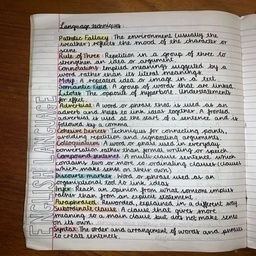 Language techniques
Pathetic Fallacy The environment (usually the
weather) reflects the mood of the character or
scene
Rule of Three: Repetition in a group of three to
strengthen an idea or argument.
Connotations Implied meanings suggested by a
word rather than its literal meanings.
Motif: A repeated idea or image in a text
Semantic Field: A group of words that are linked.
Litotes The opposite of hyperbole. Understatements
for effect.
Adverbial: A word or phrase that is used as an
adverb and helps to link ideas together. A fronted
adverbial is used at the start of a sentence and is
followed by a comma.
Cohesive Devices: Techniques for connecting points,
avoiding repetition and signposting arguments.
Colloquialism: A word or phrase used in everyday
conversation rather than formal writing or speech.
Compound sentences: A multi-clause sentence which
contains two or more co-ordinating clauses (clauses
which make sense on their own)
Discourse marker: Word or phrase used as an
organisational tool to link ideas
Infer: Reach an opinion from what someone implies
rather than from an explicit statement.
Paraphrased: Reworded, explained in a different way
Subordinate clause: A clause that gives more
meaning to a main clause but does not make sense
on its own.
Syntax: The order and arrangement of words and phrases
to create sentences.
ENGLISH LANGUAGE